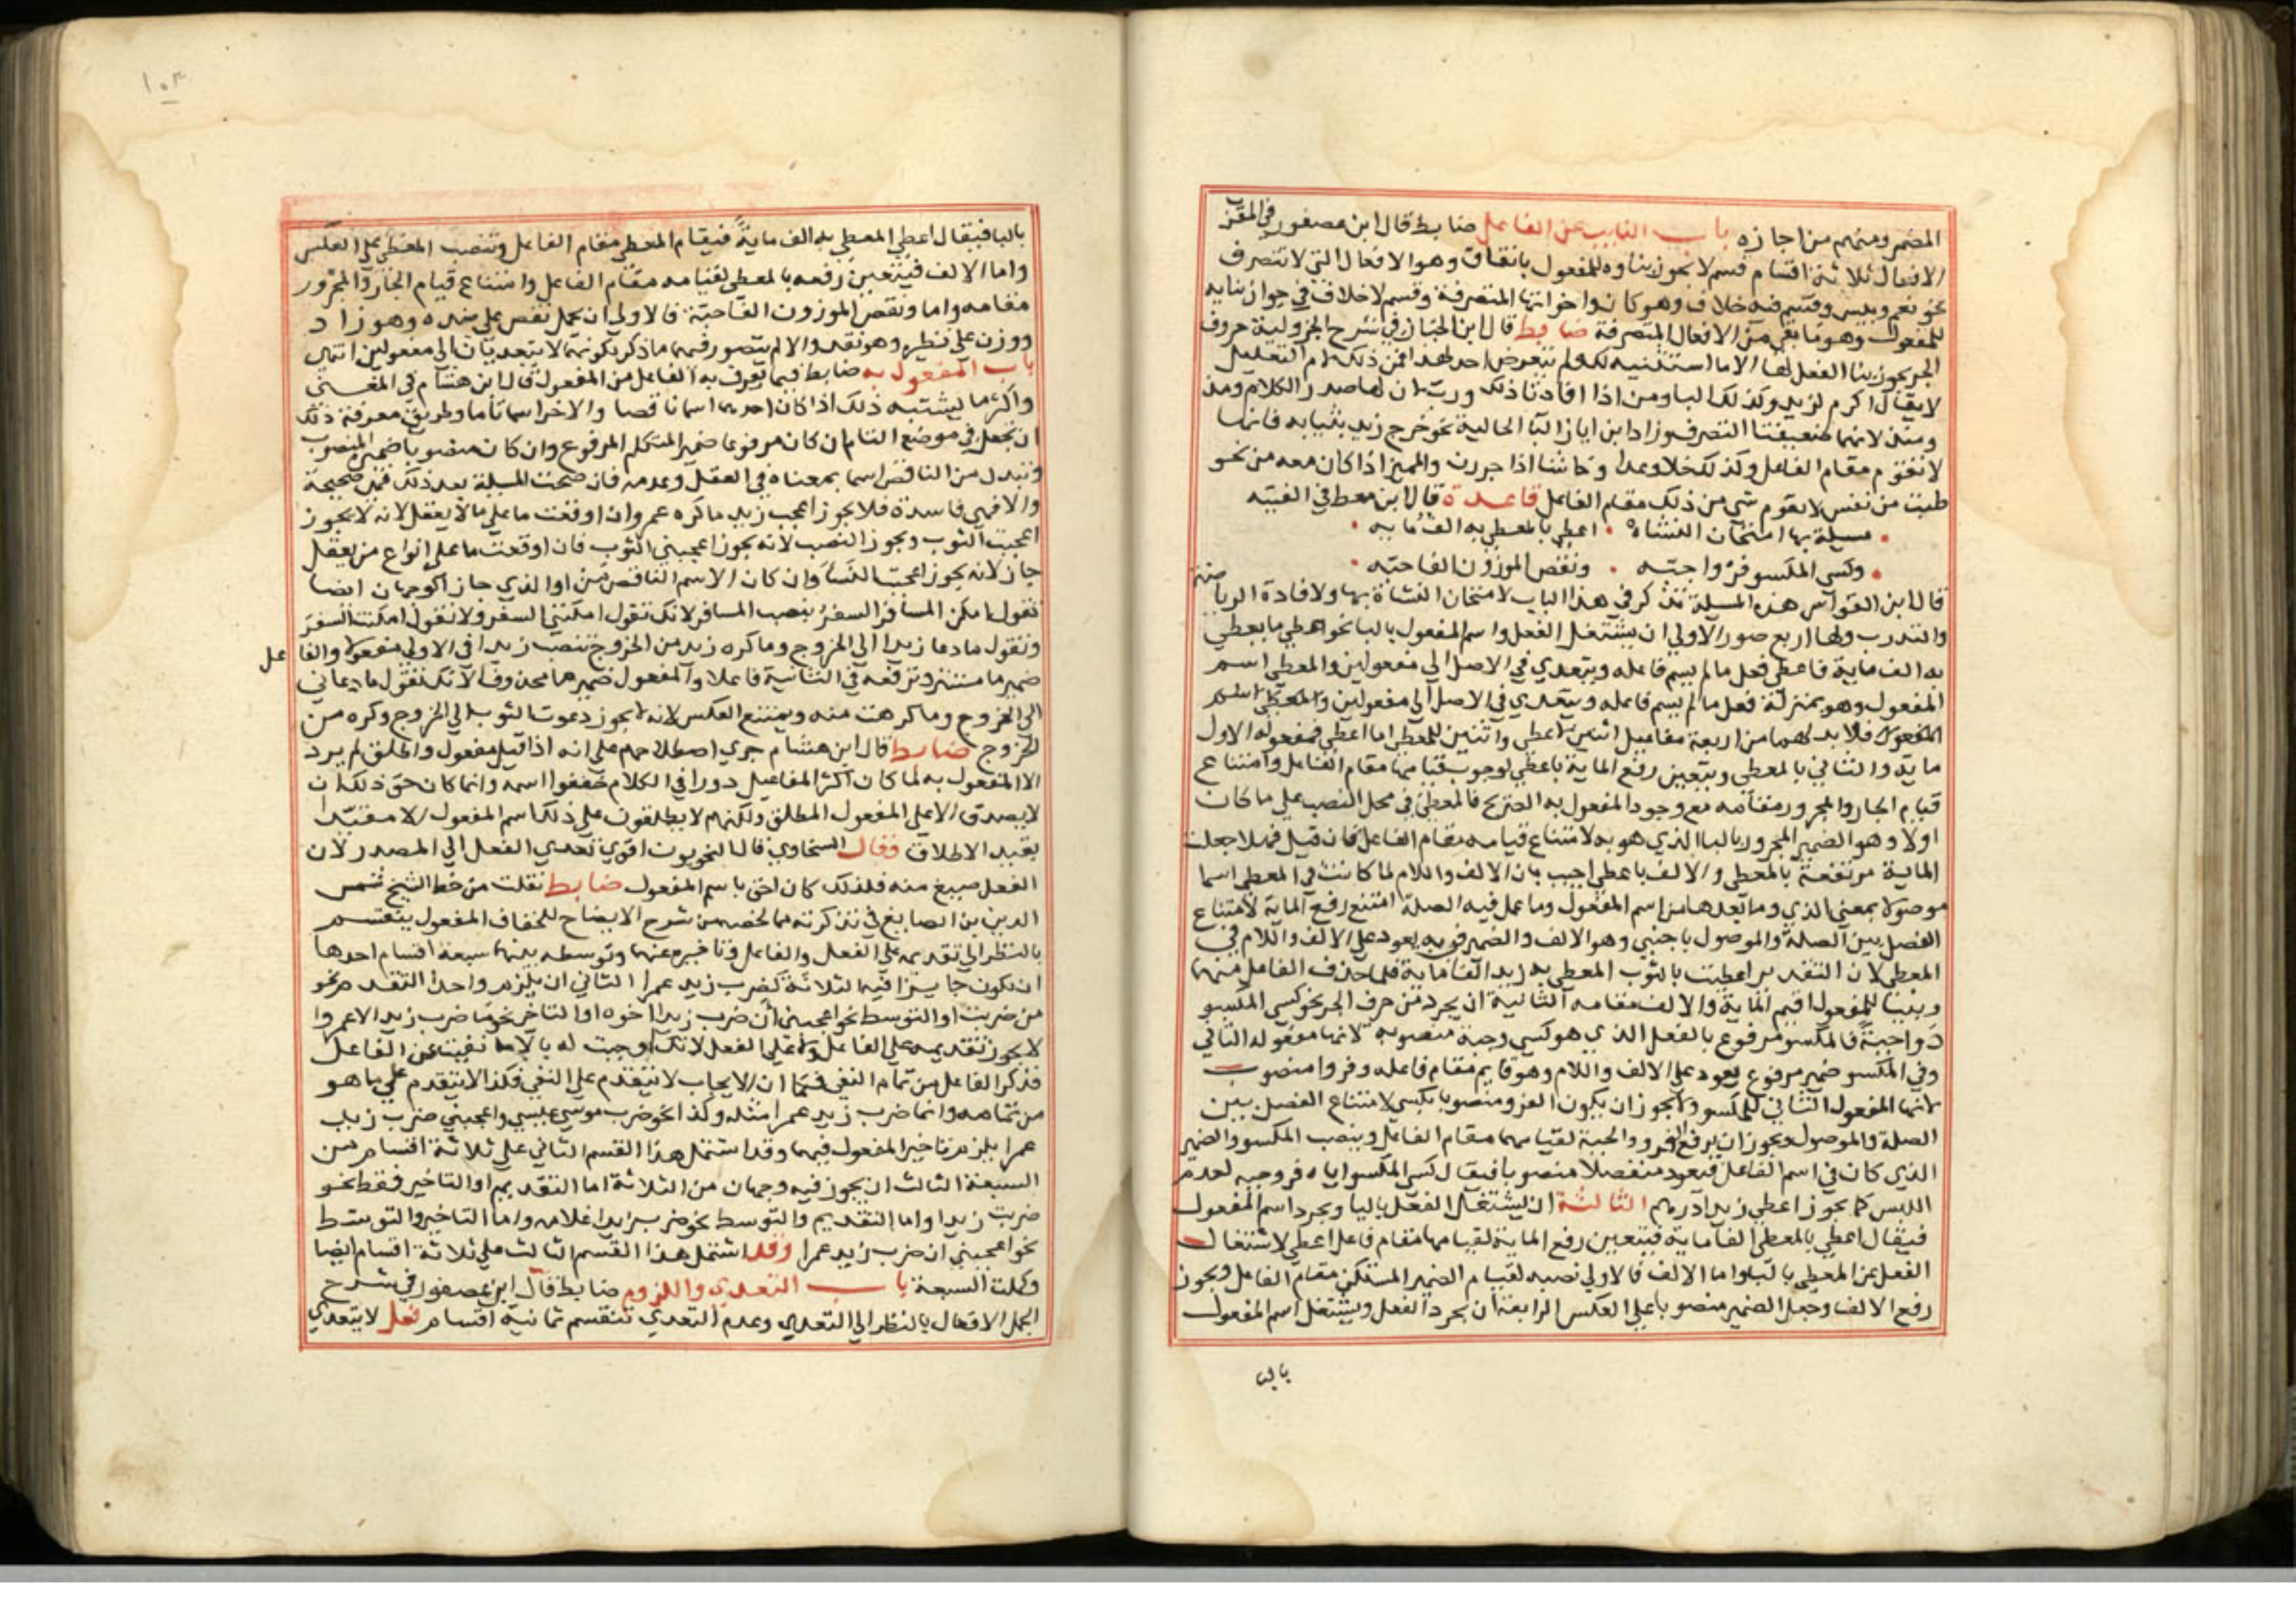 المضمر ومنهم من اجازه باب النايب عن الفاعل ضابط قال ابن عصفور في المقرب
الافعال ثلاثة اقسام قسم لا يجوز بناوه للمفعول باتفاق وهو الافعال التي لا تتصرف
نحو نعم وبيس وقسم فيه خلاف وهو كان واخواتها المتصرفة وقسم لا خلاف في جواز بنايه
للمفعول وهو ما بقي من الافعال المتصرفة ضابط قال ابن الخباز في شرح الجزولية حروف
الجر يجوز بنا الفعل لها الا ما استثنيه لك ولم يتعرض احد لهذا فمن ذلك لام التعليل
لا يقال اكرم لزيد وكذلك البا ومن اذا افادتا ذلك ورب لان لها صدر الكلام ومذ
ومنذ لانهما ضعيفتا التصرف وزاد ابن اياز البا الحالية نحو خرج زيد بثيابه فانها
لا تقوم مقام الفاعل وكذلك خلا وعدا وحاشا اذا جررن والمميز اذا كان معه من نحو
طبت من نفس لا يقوم شي من ذلك مقام الفاعل قاعدة قال ابن معط في الفيته
مسيلة بها امتحان النشاه • اعطي بالمعطي به الف مايه •
• وكسي المكسو فروا جبه • ونقص الموزون الفا حبه •
قال ابن القواس هذه المسيلة تذكر في هذا الباب لامتحان النشاة بها ولافادة الرياضة
والتدرب ولها اربع صور الاولي ان يشتغل الفعل واسم المفعول بالبا نحو اعطي ما يعطي
به الف ماية فاعطي فعل ما لم يسم فاعله ويتعدي في الاصل الي مفعولين والمعطي اسم
المفعول وهو بمنزلة فعل ما لم يسم فاعله ويتعدي في الاصل الي مفعولين والمعطي اسم
المفعول فلا بد لهما من اربعة مفاعيل اثنين لاعطي واثنين للمعطي اما اعطي فمفعوله الاول
ماية والثاني بالمعطي ويتعين رفع الماية باعطي لوجوب قيامها مقام الفاعل وامتناع
قيام الجار والمجرور مقامه مع وجود المفعول به الصريح فالمعطي في محل النصب علي ما كان
اولا وهو الضمير المجرور بالبا الذي هو به لامتناع قيامه مقام الفاعل فان قيل فهلا جعلت
الماية مرتفعة بالمعطي والالف باعطي اجيب بان الالف واللام لما كانت في المعطي اسما
موصولا بمعني الذي وما بعدها من اسم المفعول وما عمل فيه الصلة امتنع رفع الماية لامتناع
الفصل بين الصلة والموصول باجنبي وهو الالف والضمير في به يعود علي الالف واللام في
المعطي لان التقدير اعطيت بالثوب المعطي به زيد الفا ماية فلما حذف الفاعل منهما
وبنيا للمفعول اقيم الماية والالف مقامه الثانية ان يجرد من حرف الجر نحو كسي المكسو
فروا جبة فالمكسو مرفوع بالفعل الذي هو كسي وجبة منصوبه لانها مفعوله الثاني
وفي المكسو ضمير مرفوع يعود علي الالف واللام وهو قايم مقام فاعله وفروا منصوب
لانها المفعول الثاني للمكسو ولا يجوز ان يكون الفرو منصوبا بكسي لامتناع الفصل بين
الصلة والموصول ويجوز ان يرفع الفرو والجبة لقيامهما مقام الفاعل وينصب المكسو والضمير
الذي كان في اسم الفاعل فيعود منفصلا منصوبا فيقال كسي المكسو اياه فرو جبه لعدم
اللبس كما يجوز اعطي زيدا درهم الثالثة ان يشتغل الفعل بالبا ويجرد اسم المفعول
فيقال اعطي بالمعطي الفا ماية فيتعين رفع الماية لقيامها مقام فاعل اعطي لاشتغال
الفعل عن المعطي بالبا واما الالف فالاولي نصبه لقيام الضمير المستكن مقام الفاعل ويجوز
رفع الالف وجعل الضمير منصوبا علي العكس الرابعة ان يجرد الفعل ويشتغل اسم المفعول
بالبا
١٠٣
بالبا فيقال اعطي المعطي به الف ماية فيقام المعطي مقام الفاعل وتنصب المعطي علي العكس
واما الالف فيتعين رفعه بالمعطي لقيامه مقام الفاعل وامتناع قيام الجار والمجرور
مقامه واما ونقص الموزون الفا حبة فالاولي ان يحمل نقص علي ضده وهو زاد
ووزن علي نظيره وهو نقد والا لم يتصور فيهما ما ذكر بكونهما لا يتعديان الي مفعولين انتهي
باب المفعول به ضابط فيما يعرف به الفاعل من المفعول قال ابن هشام في المغني
واكثر ما يشتبه ذلك اذا كان احدهما اسما ناقصا والاخر اسما تاما وطريق معرفة ذلك
ان تجعل في موضع التام ان كان مرفوعا ضمير المتكلم المرفوع وان كان منصوبا ضميره المنصوب
وتبدل من الناقص اسما بمعناه في العقل وعدمه فان صحت المسيلة بعد ذلك فهي صحيحة
والا فهي فاسدة فلا يجوز اعجب زيد ما كره عمرو ان اوقعت ما علي ما لا يعقل لانه لا يجوز
اعجبت الثوب ويجوز النصب لانه يجوز اعجبني الثوب فان اوقعت ما علي انواع من يعقل
جاز لانه يجوز اعجبت النسا وان كان الاسم الناقص من او الذي جاز الوجهان ايضا
تقول امكن المسافر السفر بنصب المسافر لانك تقول امكنني السفر ولا تقول امكنت السفر
وتقول ما دعا زيدا الي الخروج وما كره زيد من الخروج تنصب زيدا في الاولي مفعولا والفاعل
ضمير ما مستتر وترفعه في الثانية فاعلا والمفعول ضمير ما محذوف لانك تقول ما دعاني
الي الخروج وما كرهت منه ويمتنع العكس لانه لا يجوز دعوت الثوب الي الخروج وكره من
الخروج ضابط قال ابن هشام جري اصطلاحهم علي انه اذا قيل مفعول واطلق لم يرد
الا المفعول به لما كان اكثر المفاعيل دورا في الكلام خففوا اسمه وانما كان حق ذلك ان
لا يصدق الا علي المفعول المطلق ولكنهم لا يطلقون علي ذلك اسم المفعول الا مقيدا
بقيد الاطلاق فقال السخاوي قال النحويون اقوي تعدي الفعل الي المصدر لان
الفعل صيغ منه فلذلك كان احق باسم المفعول ضابط نقلت من خط الشيخ شمس
الدين بن الصايغ في تذكرته مما لخصه من شرح الايضاح للخفاف المفعول ينقسم
بالنظر الي تقديمه علي الفعل والفاعل وتاخيره عنهما وتوسطه بينهما سبعة اقسام احدها
ان يكون جايزا فيه الثلاثة كضرب زيد عمرا الثاني ان يلزم واحدا التقدم نحو
من ضربت او التوسط نحو اعجبني ان ضرب زيدا اخوه او التاخر نحو ما ضرب زيد الا عمروا
لا يجوز تقديمه علي الفاعل ولا علي الفعل لانك اوجبت له بالا ما نفيت عن الفاعل
فذكر الفاعل من تمام النفي فكما ان الايجاب لا يتقدم علي النفي فكذا لا يتقدم علي ما هو
من تمامه وانما ضرب زيد عمرا مثله وكذا نحو ضرب موسي عيسي واعجبني ضرب زيد
عمرا يلزم تاخير المفعول فيهما وقد اشتمل هذا القسم الثاني علي ثلاثة اقسام من
السبعة الثالث ان يجوز فيه وجهان من الثلاثة اما التقديم او التاخير فقط نحو
ضربت زيدا واما التقديم والتوسط نحو ضرب زيدا غلامه واما التاخير والتوسط
نحو اعجبني ان ضرب زيد عمرا وقد اشتمل هذا القسم الثالث علي ثلاثة اقسام ايضا
وكملت السبعة باب التعدي واللزوم ضابط قال ابن عصفور في شرح
الجمل الافعال بالنظر الي التعدي وعدم التعدي تنقسم ثمانية اقسام فعل لا يتعدي